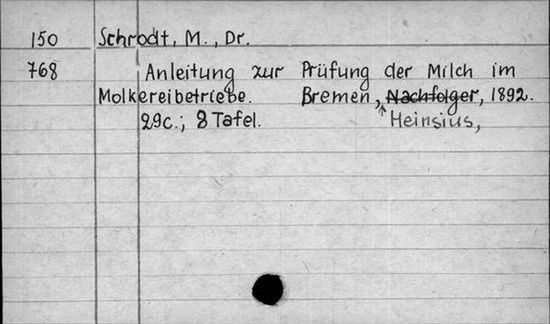 150 Schrodt, M., Dr.
768 Anleitung zur Prüfung der Milch im
Molkereibetriebe. Bremen, Nachfolger, 1892.
29c.; 8 Tafel. Heinsius,